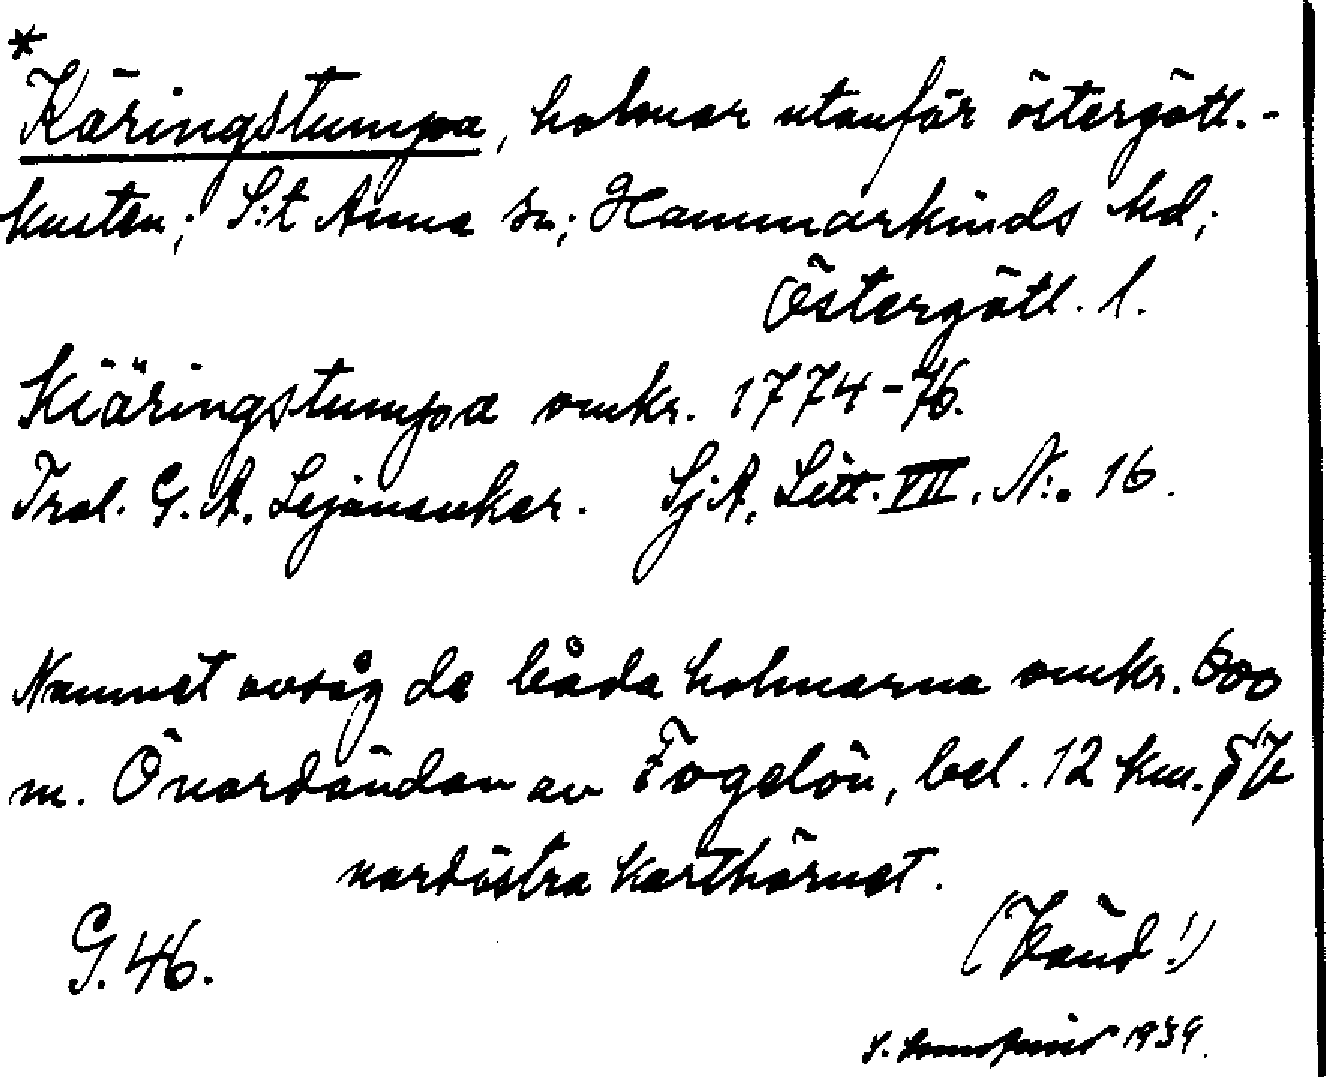 *
Käringstumpa, holmar utanför östergötl.-
kusten; S:t Anna sn; Hammarkinds hd;
Östergötl. l.
Kiäringstumpa omkr. 1774-76.
Trol. G. A. Lejonanker. SjA, Litt. VII. N:o 16.
Namnet avsåg de båda holmarna omkr. 600
m. Ö nordändan av Fogelön, bel. 12 km. SV
nordöstra karthörnet.
G. 46.
(Vänd!)
S. 1939.